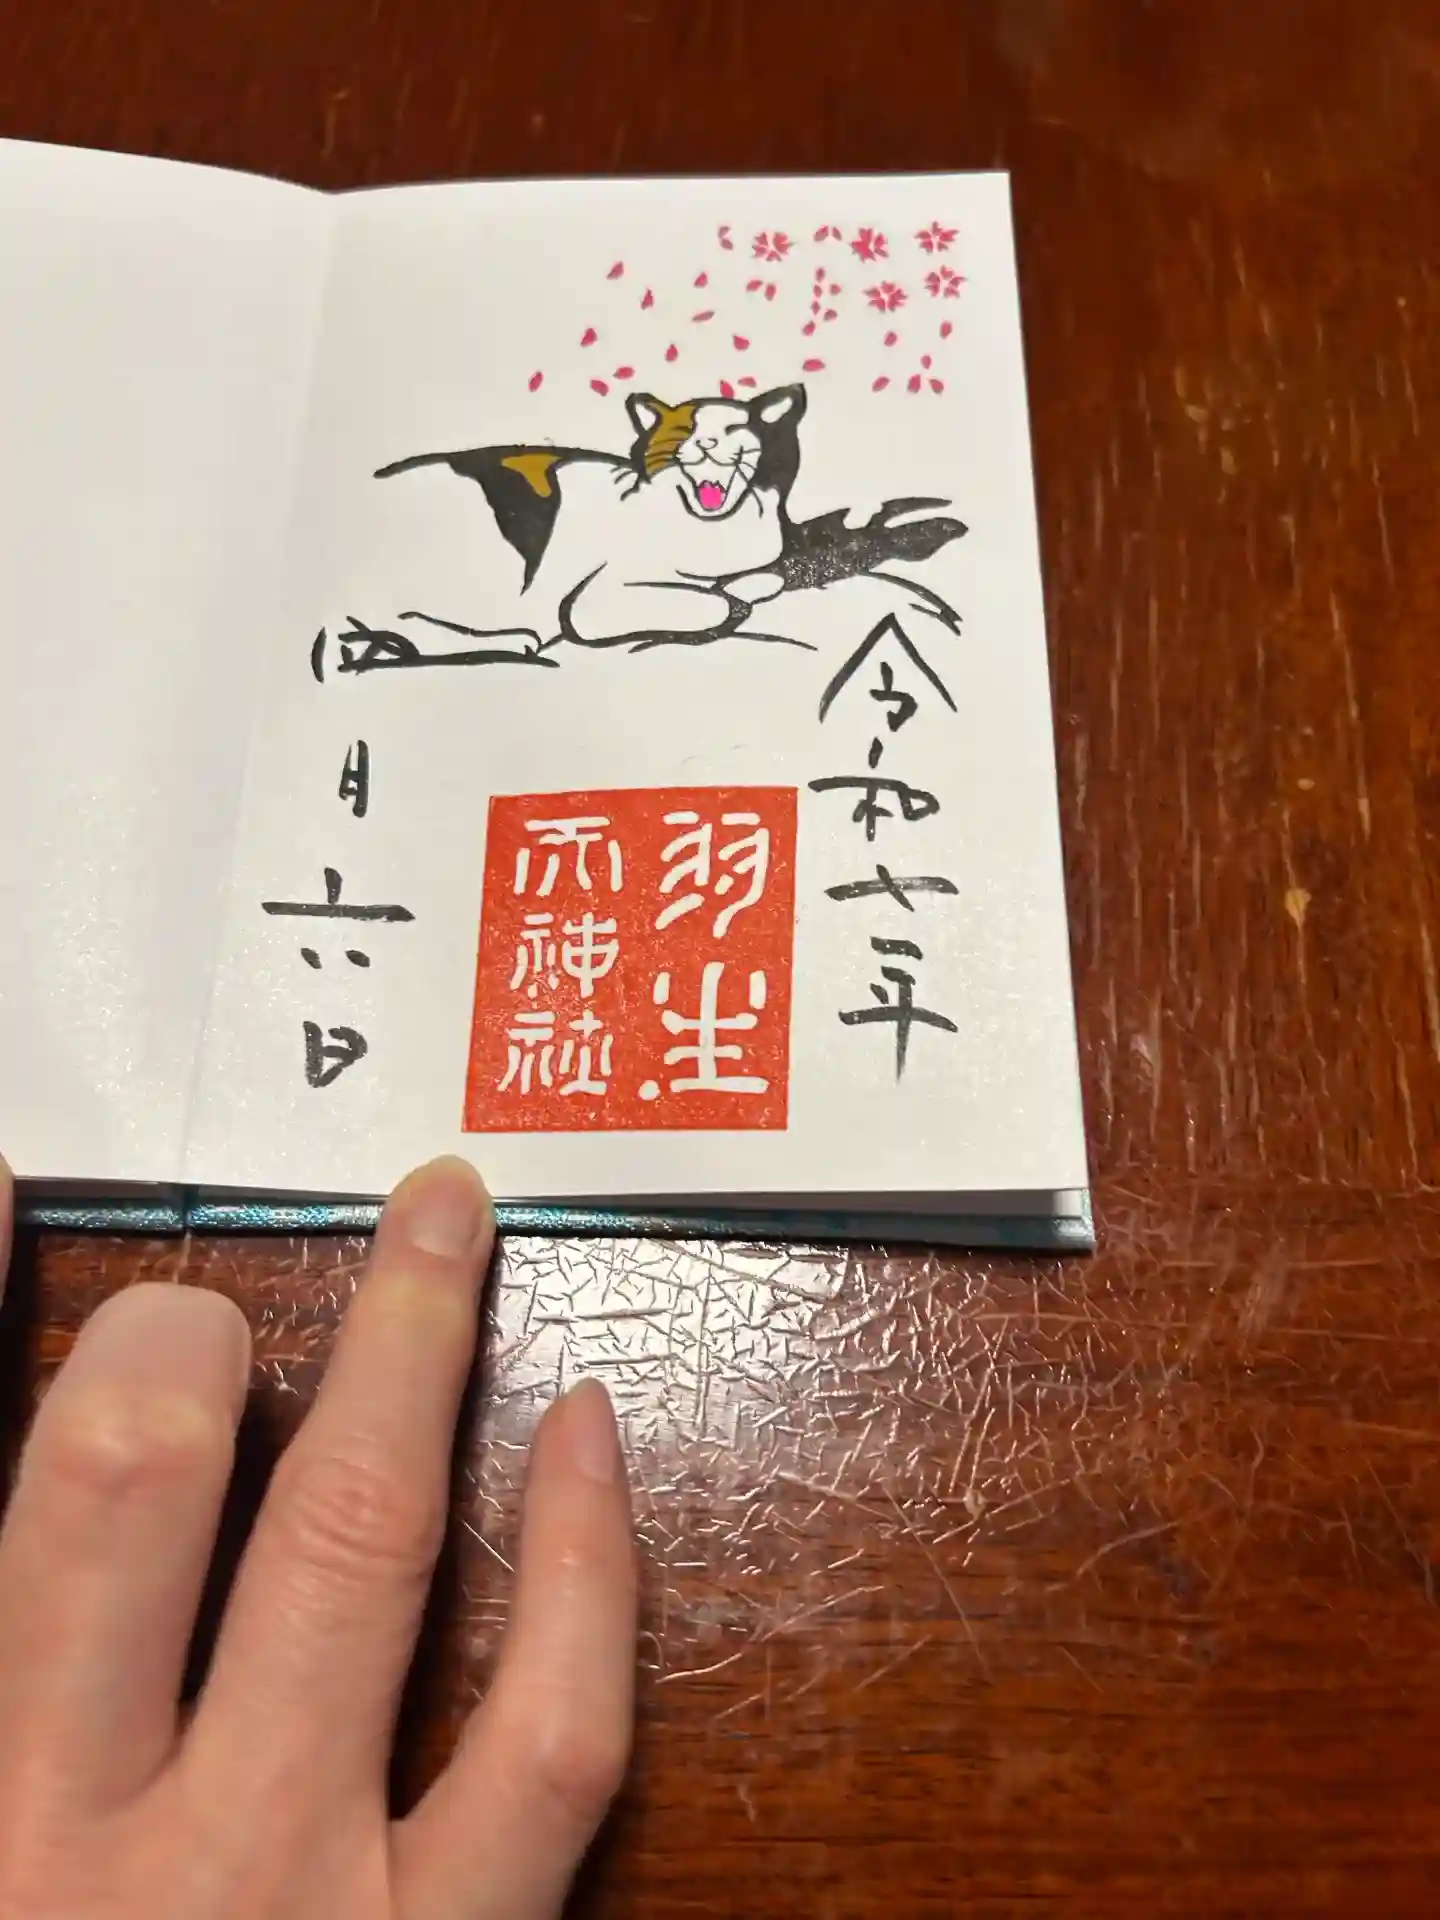 令和七年
弥生
天神社
四月六日